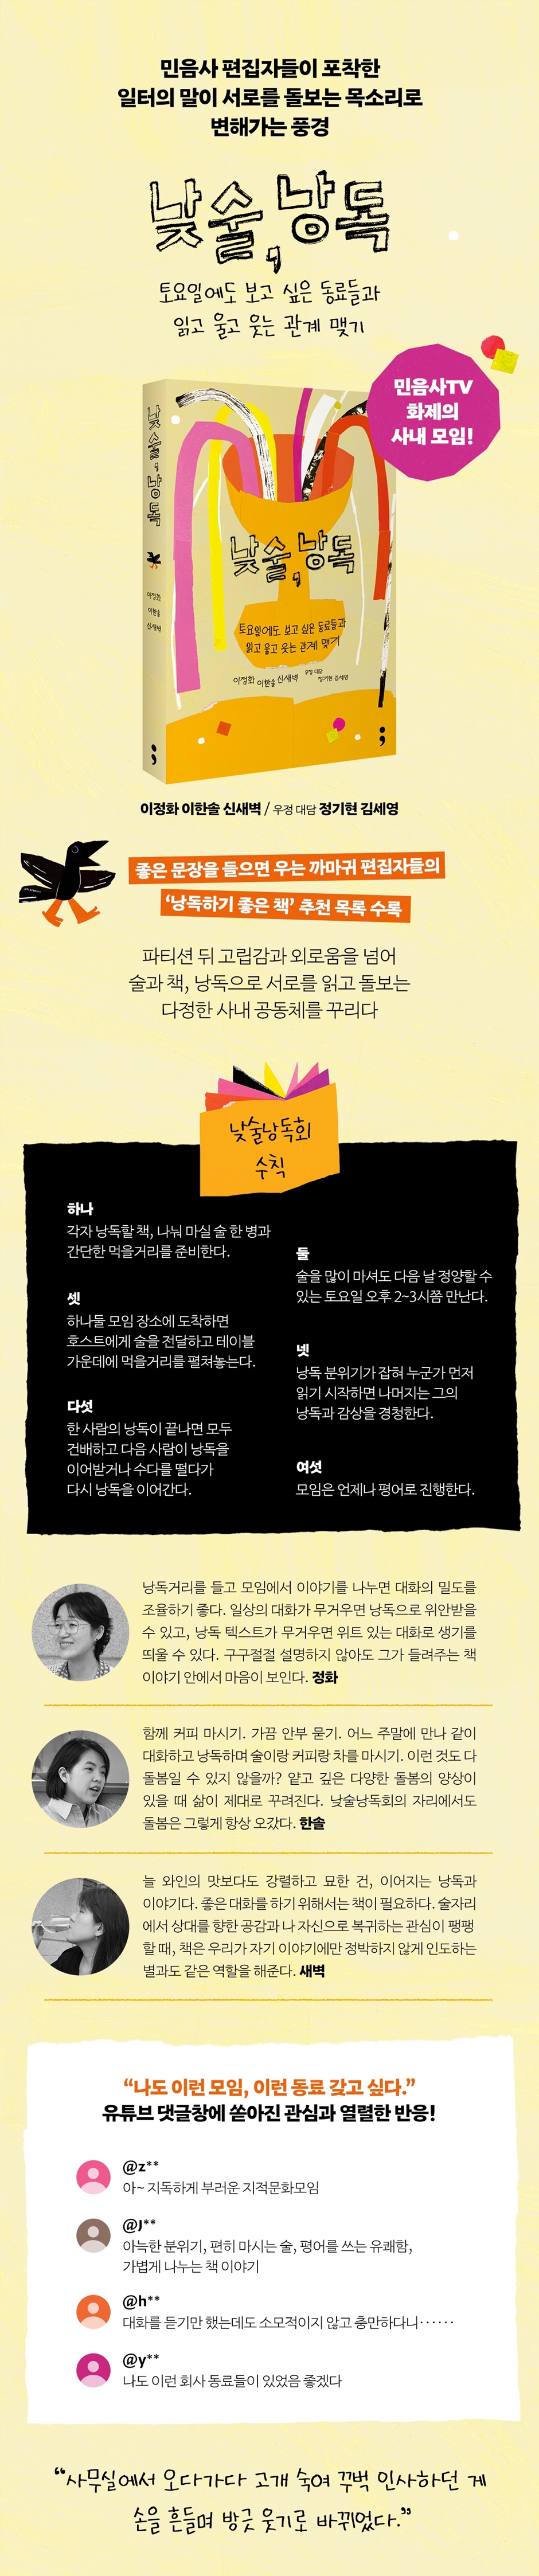 민음사 편집자들이 포착한
일터의 말이 서로를 돌보는 목소리로
변해가는 풍경
낮술, 낭독
토요일에도 보고 싶은 동료들과
읽고 울고 웃는 관계 맺기
민음사TV
화제의
사내 모임!
낮술, 낭독
이정화
이한솔
신새벽
낮술, 낭독
토요일에도 보고 싶은 동료들과
읽고 울고 웃는 관계 맺기
이정화 이한솔 신새벽 우정 대담 정기현 김세영
이정화 이한솔 신새벽 / 우정 대담 정기현 김세영
좋은 문장을 들으면 우는 까마귀 편집자들의
‘낭독하기 좋은 책’ 추천 목록 수록
파티션 뒤 고립감과 외로움을 넘어
술과 책, 낭독으로 서로를 읽고 돌보는
다정한 사내 공동체를 꾸리다
낮술낭독회
수칙
하나
각자 낭독할 책, 나눠 마실 술 한 병과
간단한 먹을거리를 준비한다.
둘
술을 많이 마셔도 다음 날 정양할 수
있는 토요일 오후 2~3시쯤 만난다.
셋
하나둘 모임 장소에 도착하면
호스트에게 술을 전달하고 테이블
가운데에 먹을거리를 펼쳐놓는다.
넷
낭독 분위기가 잡혀 누군가 먼저
읽기 시작하면 나머지는 그의
낭독과 감상을 경청한다.
다섯
한 사람의 낭독이 끝나면 모두
건배하고 다음 사람이 낭독을
이어받거나 수다를 떨다가
다시 낭독을 이어간다.
여섯
모임은 언제나 평어로 진행한다.
낭독거리를 들고 모임에서 이야기를 나누면 대화의 밀도를
조율하기 좋다. 일상의 대화가 무거우면 낭독으로 위안받을
수 있고, 낭독 텍스트가 무거우면 위트 있는 대화로 생기를
띄울 수 있다. 구구절절 설명하지 않아도 그가 들려주는 책
이야기 안에서 마음이 보인다. 정화
함께 커피 마시기. 가끔 안부 묻기. 어느 주말에 만나 같이
대화하고 낭독하며 술이랑 커피랑 차를 마시기. 이런 것도 다
돌봄일 수 있지 않을까? 얕고 깊은 다양한 돌봄의 양상이
있을 때 삶이 제대로 꾸려진다. 낮술낭독회의 자리에서도
돌봄은 그렇게 항상 오갔다. 한솔
늘 와인의 맛보다도 강렬하고 묘한 건, 이어지는 낭독과
이야기다. 좋은 대화를 하기 위해서는 책이 필요하다. 술자리
에서 상대를 향한 공감과 나 자신으로 복귀하는 관심이 팽팽
할 때, 책은 우리가 자기 이야기에만 정박하지 않게 인도하는
별과도 같은 역할을 해준다. 새벽
“나도 이런 모임, 이런 동료 갖고 싶다.”
유튜브 댓글창에 쏟아진 관심과 열렬한 반응!
@z**
아~ 지독하게 부러운 지적문화모임
@J**
아늑한 분위기, 편히 마시는 술, 평어를 쓰는 유쾌함,
가볍게 나누는 책 이야기
@h**
대화를 듣기만 했는데도 소모적이지 않고 충만하다니······
@y**
나도 이런 회사 동료들이 있었음 좋겠다
“사무실에서 오다가다 고개 숙여 꾸벅 인사하던 게
손을 흔들며 방긋 웃기로 바뀌었다.”